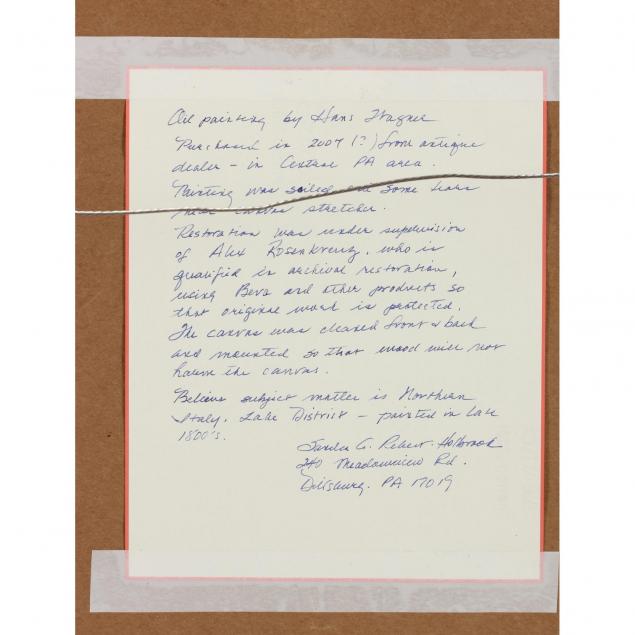 Oil painting by Hans Wagner
Purchased in 2007 (?) from antique
dealer – in Central PA area.
Painting was soiled and some tears
canvas stretcher.
Restoration was under supervision
of Alex Rosenkrenz, who is
qualified in archival restoration,
using Beva and other products so
that original work is protected.
The canvas was cleaned front & back
and mounted so that wood will not
harm the canvas.
Believe subject matter is Northern
Italy, Lake District – painted in late
1800's.
Sandra G. Holbrook
240 Meadowview Rd.
Dillsburg, PA 17019